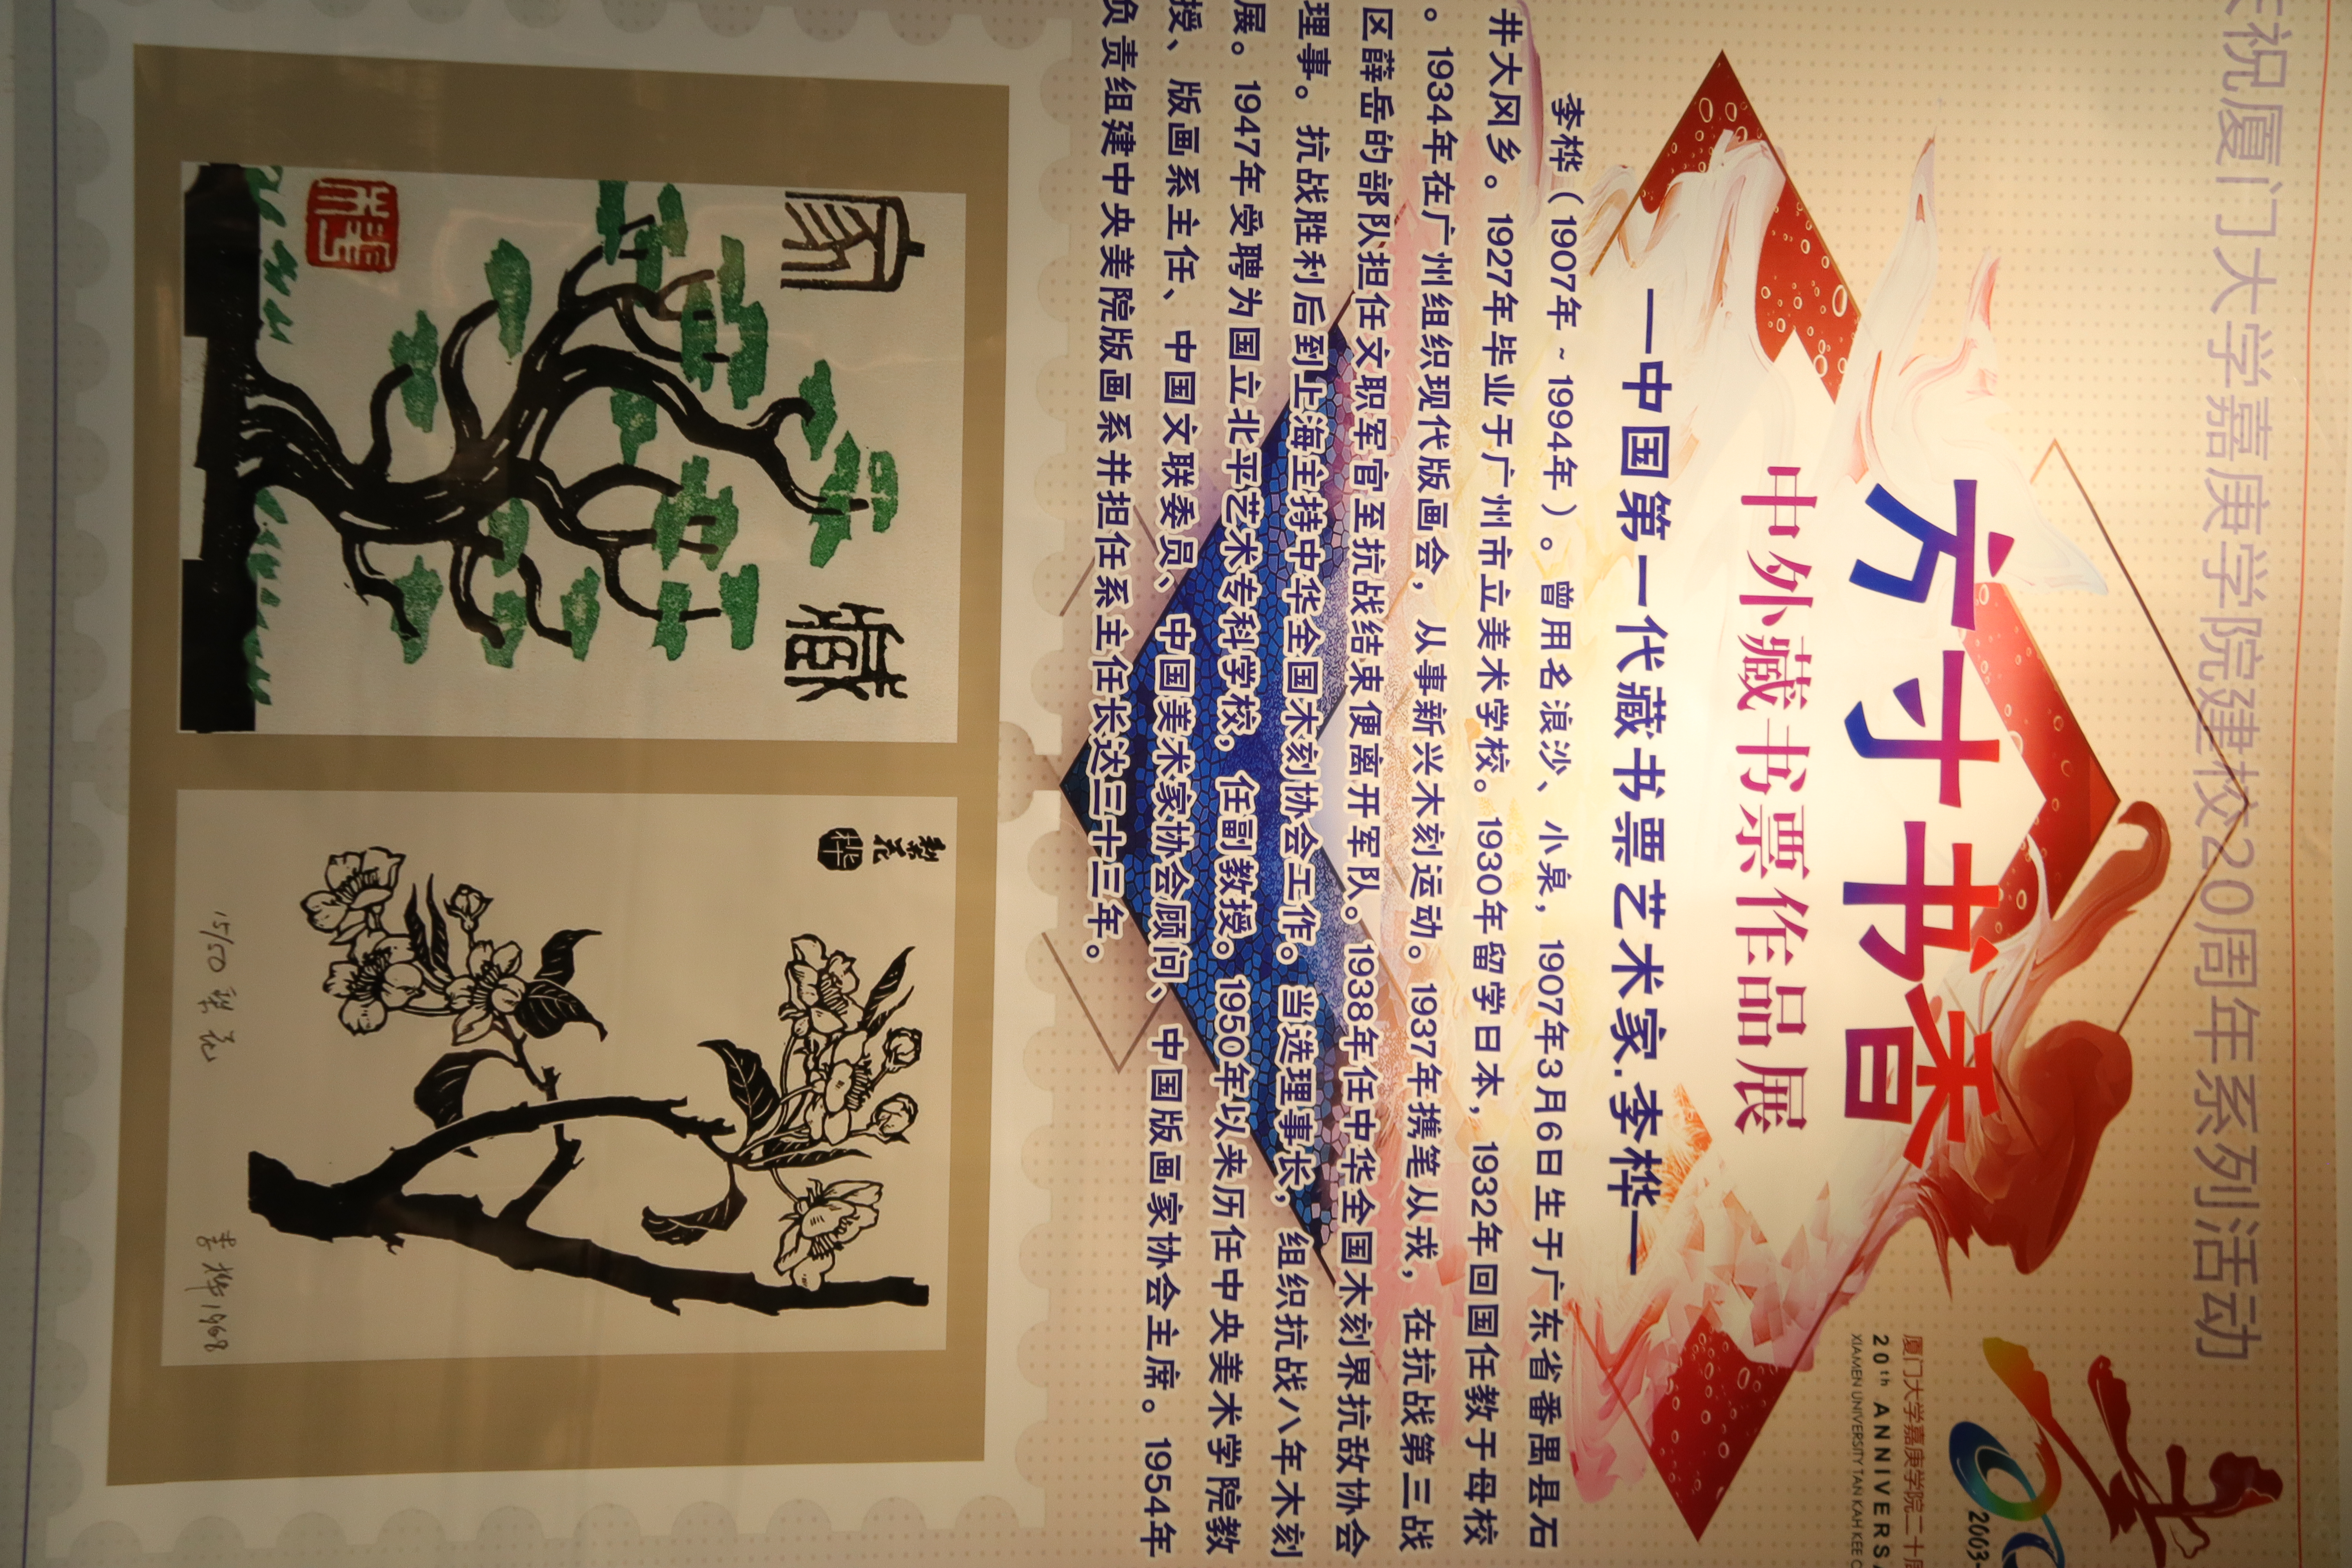 庆祝厦门大学嘉庚学院建校20周年系列活动
厦门大学嘉庚学院二十周
20th ANNIVERSA
XIAMEN UNIVERSITY TAN KAH KEE C
2003-
方寸书香
中外藏书票作品展
—中国第一代藏书票艺术家.李桦—
李桦（1907年 ~ 1994年）。曾用名浪沙、小泉，1907年3月6日生于广东省番禺县石
井大冈乡。1927年毕业于广州市立美术学校。1930年留学日本，1932年回国任教于母校
。1934年在广州组织现代版画会，从事新兴木刻运动。1937年携笔从戎，在抗战第三战
区薛岳的部队担任文职军官至抗战结束便离开军队。1938年任中华全国木刻界抗敌协会
理事。抗战胜利后到上海主持中华全国木刻协会工作。当选理事长，组织抗战八年木刻
展。1947年受聘为国立北平艺术专科学校，任副教授。1950年以来历任中央美术学院教
授、版画系主任、中国文联委员、中国美术家协会顾问、中国版画家协会主席。1954年
负责组建中央美院版画系并担任系主任长达三十三年。
家藏
李桦
梨花
桦
15/50 梨花 李桦1968